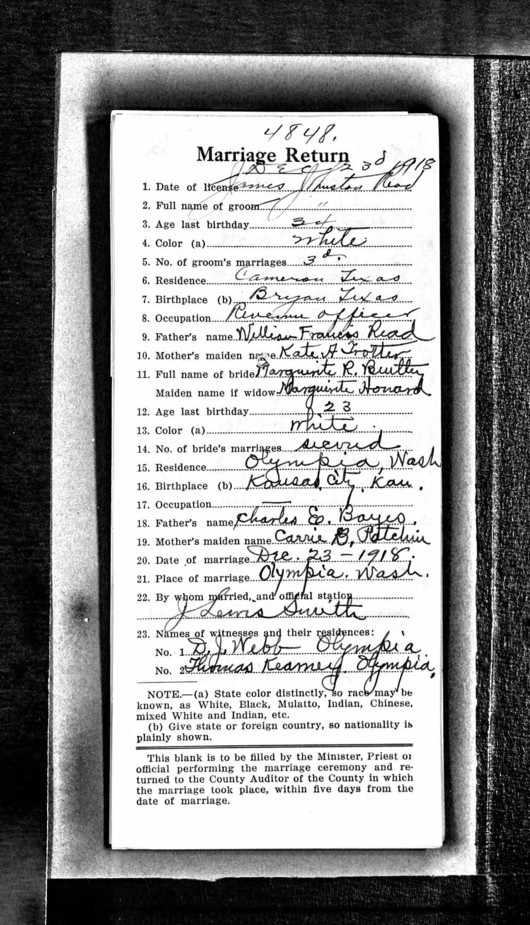 4848.
Marriage Return
1. Date of license Dec 23d 1918
2. Full name of groom James Read
3. Age last birthday 34
4. Color (a) White
5. No. of groom's marriages 3d.
6. Residence Cameron Texas
7. Birthplace (b) Bryan Texas
8. Occupation Revenue officer
9. Father's name William Francis Read
10. Mother's maiden name Kate A Trotter
11. Full name of bride Marguerite R. Buitler
Maiden name if widow Marguirite Honard
12. Age last birthday 23
13. Color (a) White
14. No. of bride's marriages second
15. Residence Olympia, Wash
16. Birthplace (b) Kansas City, Kan.
17. Occupation —
18. Father's name Charles E. Bayes.
19. Mother's maiden name Carrie B. Patchin
20. Date of marriage Dec. 23 - 1918.
21. Place of marriage Olympia. Wash.
22. By whom married, and official station
J Lewis Smith
23. Names of witnesses and their residences:
No. 1 D. J. Webb Olympia.
No. 2 Thomas Kearney, Olympia,
NOTE.—(a) State color distinctly, so race may be
known, as White, Black, Mulatto, Indian, Chinese,
mixed White and Indian, etc.
(b) Give state or foreign country, so nationality is
plainly shown.
This blank is to be filled by the Minister, Priest or
official performing the marriage ceremony and re-
turned to the County Auditor of the County in which
the marriage took place, within five days from the
date of marriage.